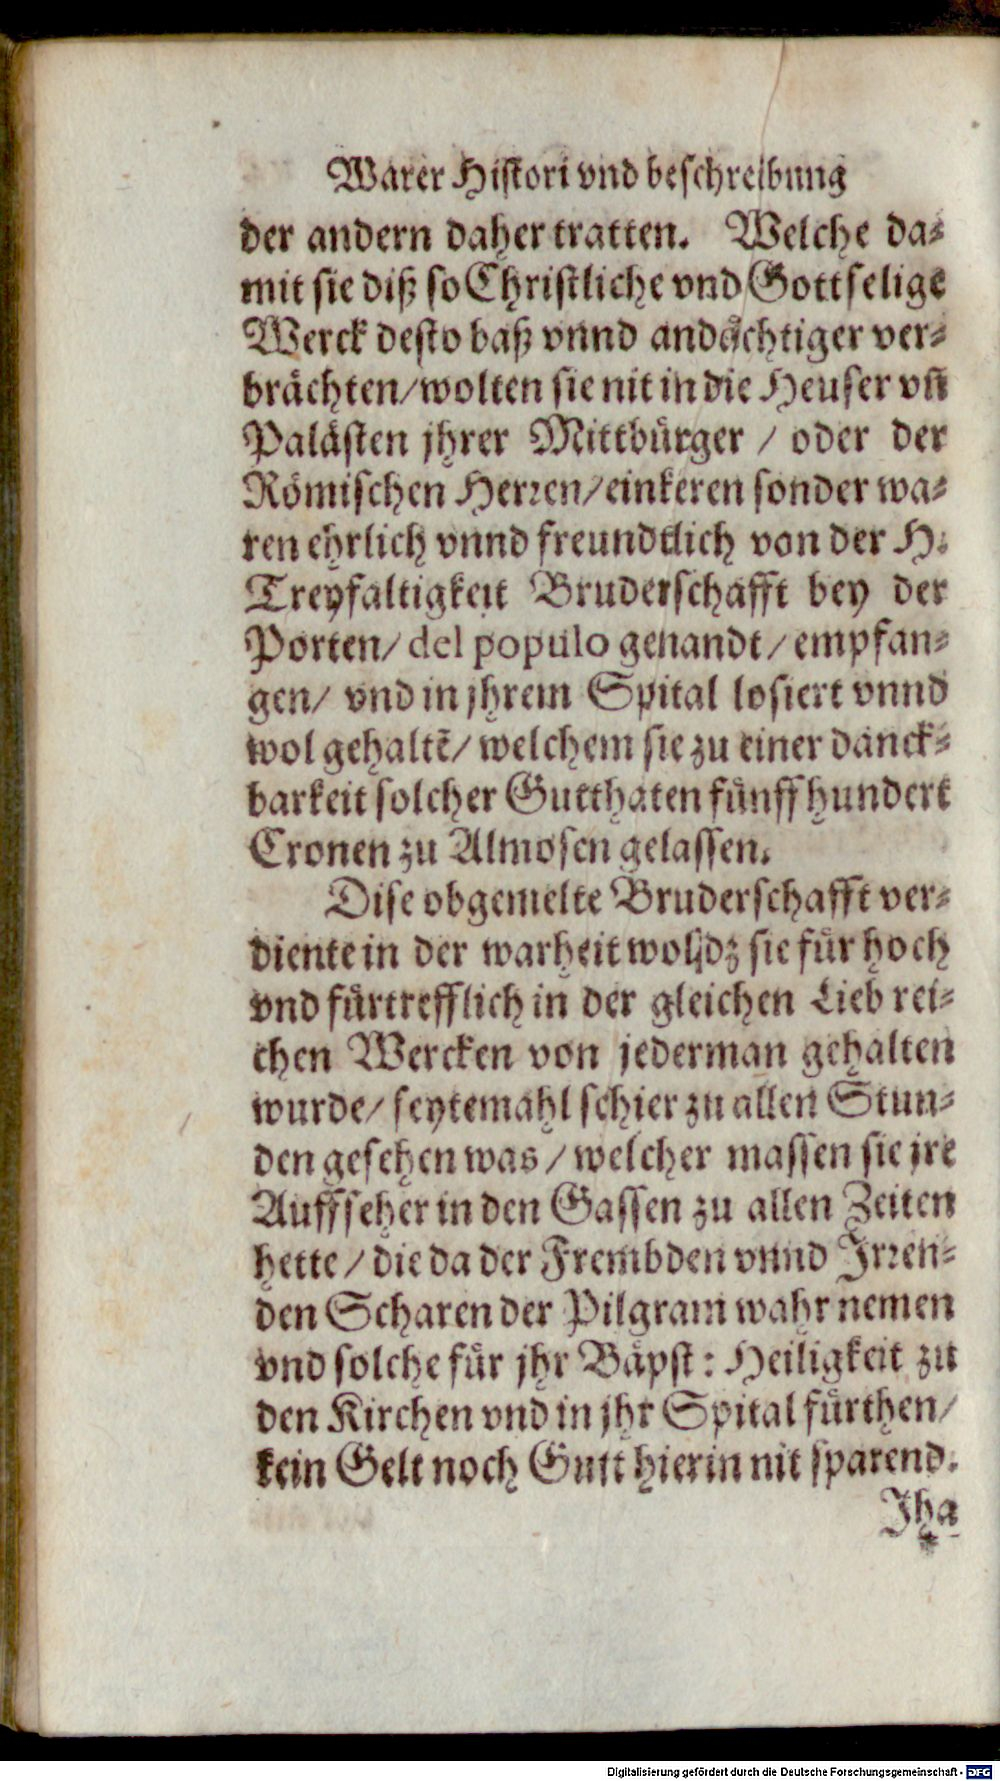 Warer Histori vnd beschreibung
der andern daher tratten. Welche da-
mit sie diß so Christliche vnd Gottselige
Werck desto baß vnnd andächtiger ver-
brächten/wolten sie nit in die Heuser vñ
Palästen jhrer Mittbürger / oder der
Römischen Herren/einkeren sonder wa-
ren ehrlich vnnd freundtlich von der H.
Treyfaltigkeit Bruderschafft bey der
Porten/ del populo genandt/ empfan-
gen/ vnd in jhrem Spital losiert vnnd
wol gehaltē/ welchem sie zu einer danck-
barkeit solcher Gutthaten fünff hundert
Cronen zu Almosen gelassen.
Dise obgemelte Bruderschafft ver-
diente in der warheit wol/dz sie für hoch
vnd fürtrefflich in der gleichen Lieb rei-
chen Wercken von jederman gehalten
wurde/ seytemahl schier zu allen Stun-
den gesehen was / welcher massen sie jre
Auffseher in den Gassen zu allen Zeiten
hette / die da der Frembden vnnd Irren-
den Scharen der Pilgram wahr nemen
vnd solche für jhr Bäpst: Heiligkeit zu
den Kirchen vnd in jhr Spital fürthen/
kein Gelt noch Gutt hierin nit sparend.
Jha
Digitalisierung gefördert durch die Deutsche Forschungsgemeinschaft - DFG